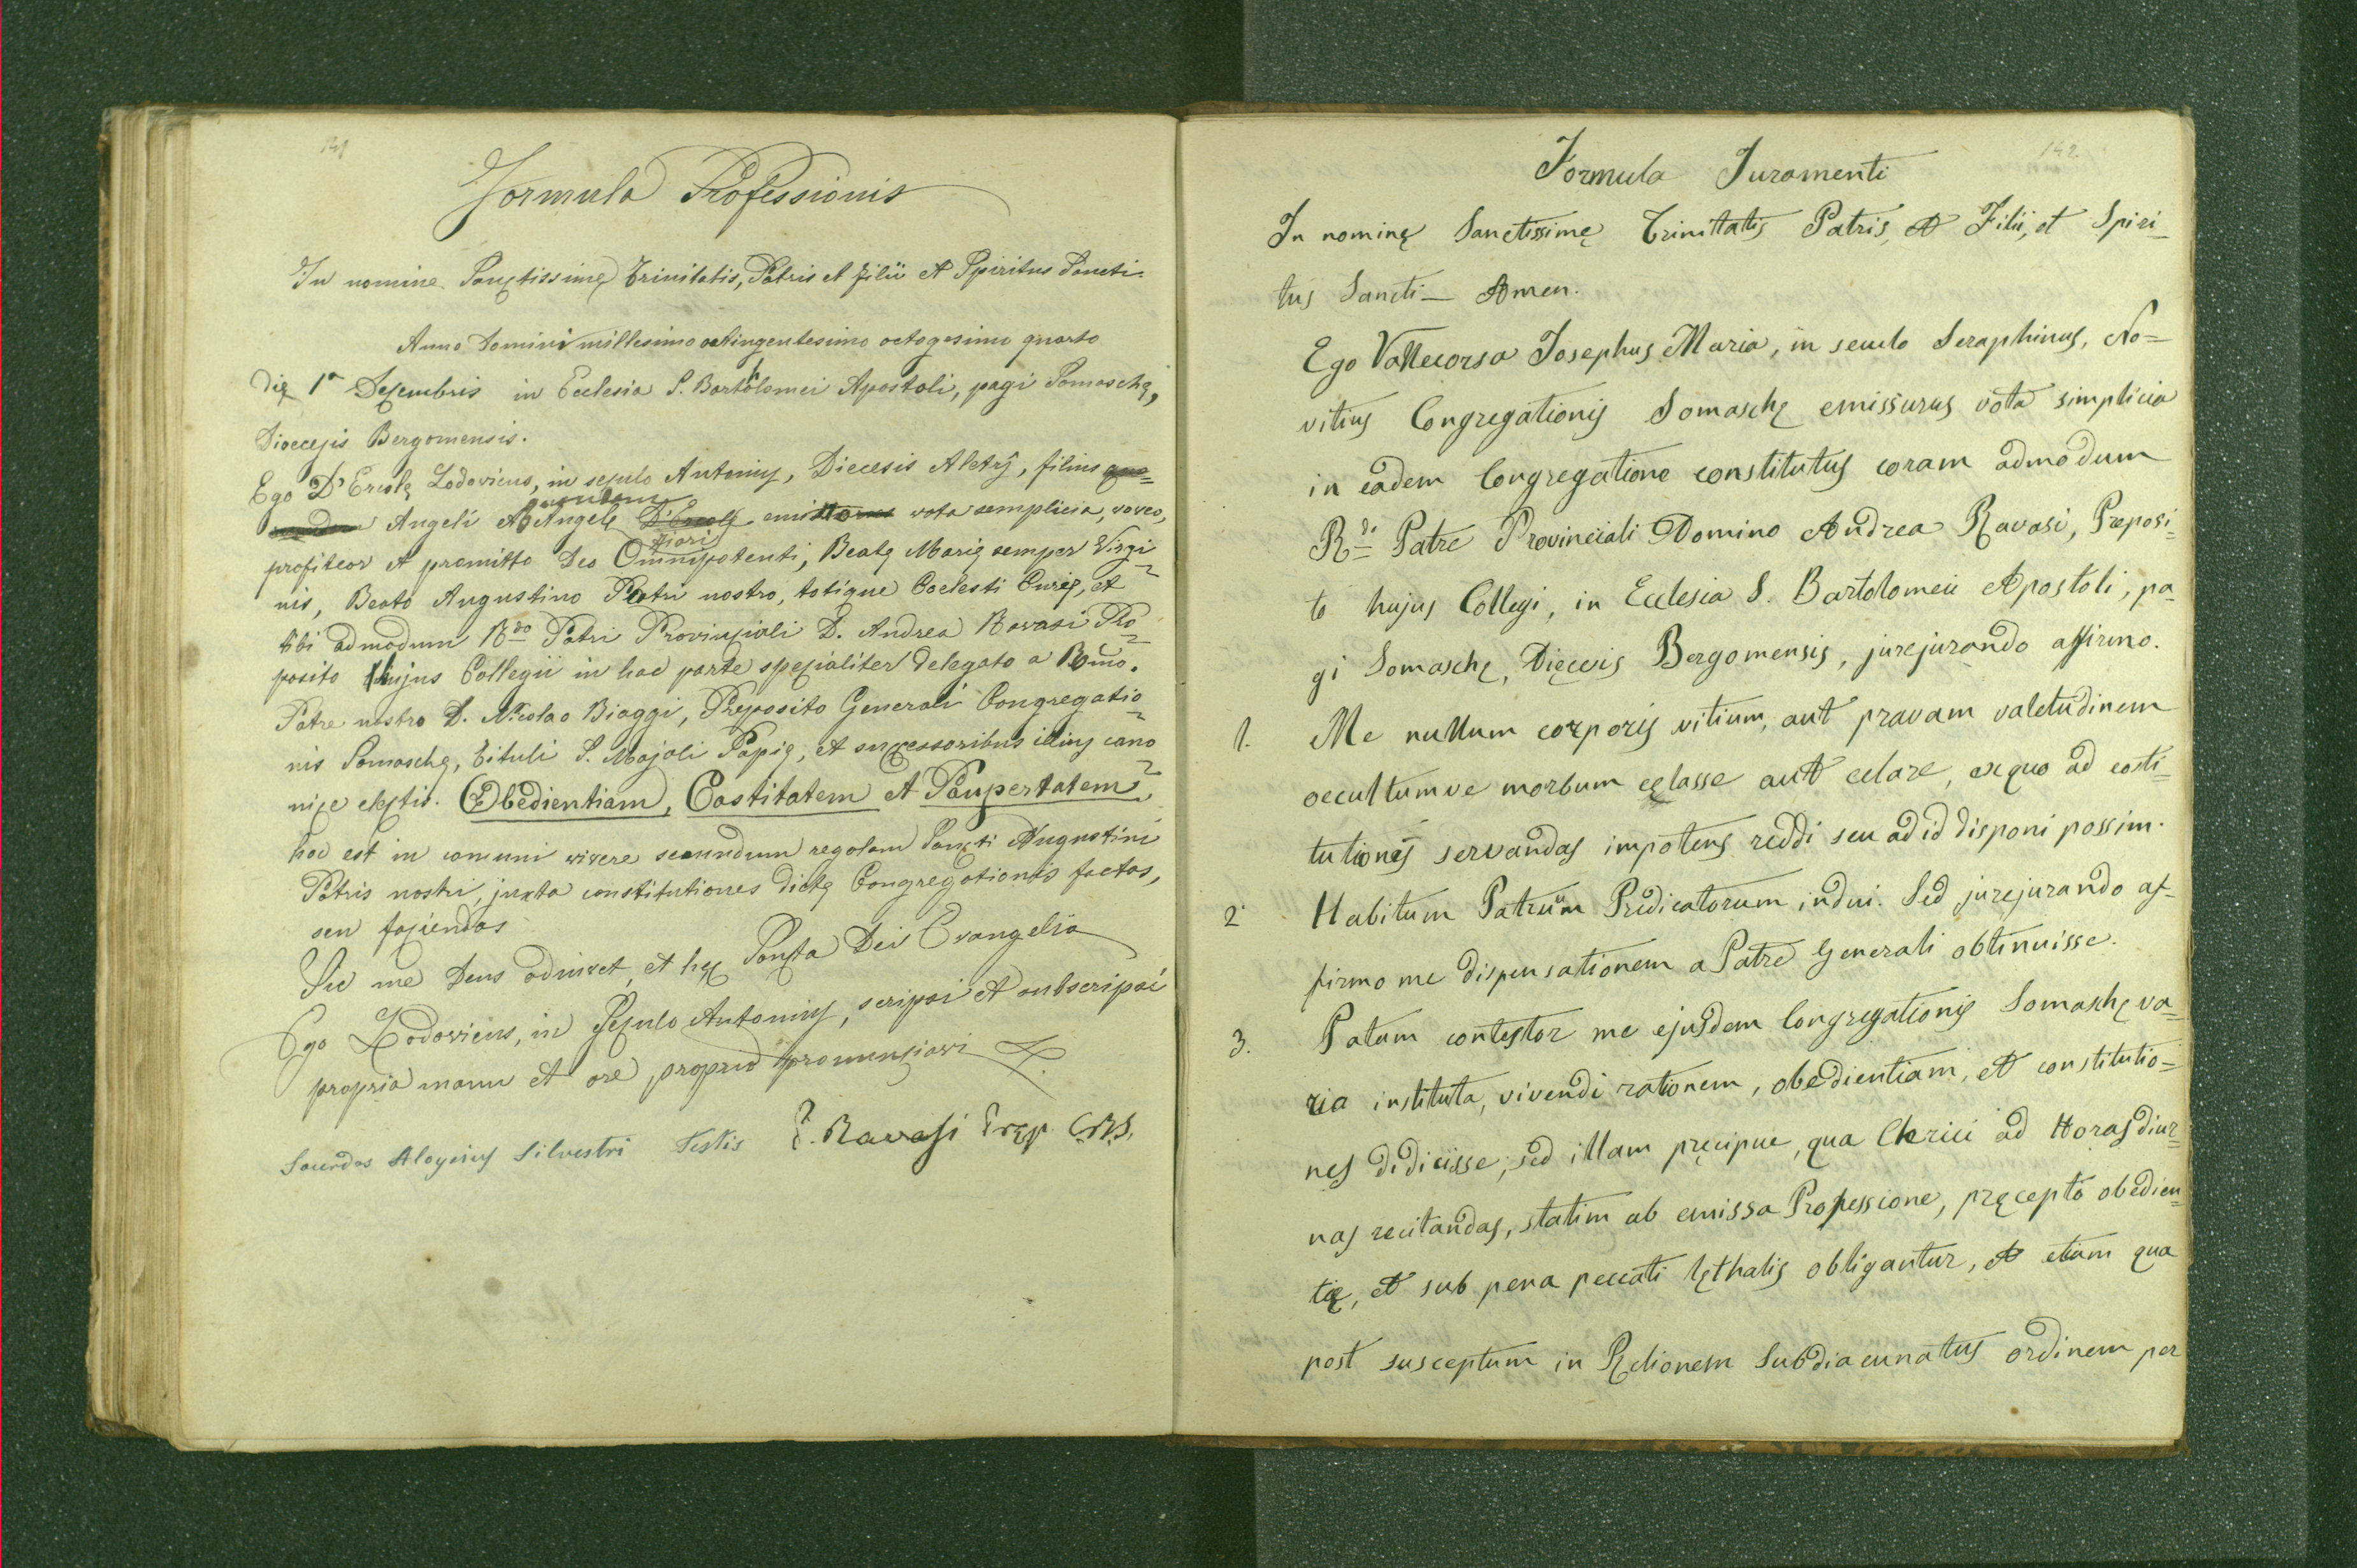 141
Formula Professionis
In nomine Sanctissimę Trinitatis, Patris et Filii et Spiritus Sancti.
Anno Domini millesimo octingentesimo octogesimo quarto
Dię 1ª Deçembris in Ecclesia S. Bartholomei Apostoli, pagi Somaschę,
Dioecesis Bergomensis.
Ego D'Ercolę Lodovicus, in seçulo Antonius, Diecesis Aletrÿ, filius
quondam
Angeli et Angelę D'Ercolę vota semplicia, voveo,
Fiori
profiteor et promitto Deo Omnipotenti, Beatę Marię semper Virgi
nis, Beato Augustino Patri nostro, totique Coelesti Curię, et
tibi admodum Rdo Patri Provinçiali D. Andrea Ravasi Prę
posito hujus Collegii in hac parte speçialiter delegato a Rm̃o.
Patre nostro D. Nicolao Biaggi, Pręposito Generali Congregatio
nis Somaschę, tituli S. Majoli Papię, et suççessoribus illius cano
niçe eleçtis. Obedientiam, Castitatem et Paupertatem,
hoc est in comuni vivere secundum regolam Sancti Augustini
Patris nostri, juxta constitutiones dictę Congregationis factas,
seu façiendas
Sic me Deus adiuvet, et hęc Sancta Dei Evangelia
Ego Lodovicus, in Seçulo Antonius, scripsi et subscripsi
propria manu et ore proprio pronunçiavi
Sacerdos Aloysius Silvestri Testis P. Ravasi Pręp. C.R.S.
142
Formula Juramenti
In nominę Sanctissimę Trinitatis Patris, et Filii, et Spiri_
tus Sancti_ Amen.
Ego Vallecorsa Josephus Maria, in seculo Seraphinus, No=
vitius Congregationis Somaschę emissurus vota simplicia
in eadem Congregatione constitutus coram admodum
Rdi Patre Provinciali Domino Andrea Ravasi, Preposi=
to hujus Collegi, in Ecclesia S. Bartolomeii Apostoli, pa=
gi Somaschę, Dięcesis Bergomensis, jurejurando affirmo.
1. Me nullum corporis vitium, aut pravam valetudinem
occultumve morbum cęlasse aut celare, exquo ad costi=
tutiones servandas impotens reddi seu ad id disponi possim.
2. Habitum Patrum Prędicatorum indui. Sed jurejurando af=
firmo me dispensationem a Patre Generali obtinuisse.
3. Patum contestor me ejusdem Congregationis Somaschę va=
ria instituta, vivendi rationem, obedientiam, et constitutio=
nes didicisse; sed illam pręcipue, qua Clerici ad Horas diur=
nas recitandas, statim ab emissa Professione, pręcepto obedien=
tię, et sub pena peccati lęthalis obligantur, et etiam qua
post susceptum in Subdiacunatus ordinem per